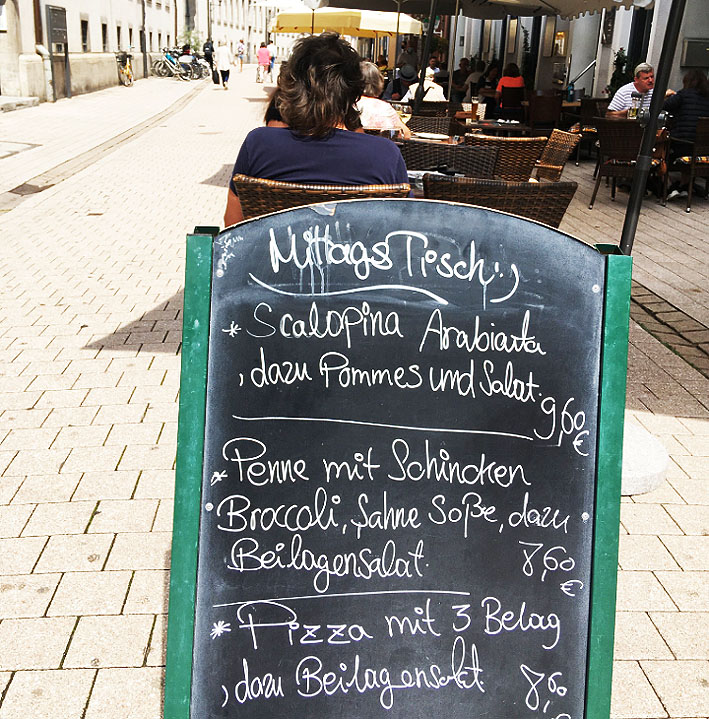 MittagsTisch :)
* Scalopina Arabiata
, dazu Pommes und Salat.
9,60
€
* Penne mit Schincken
Broccoli, Sahne Soße, dazu
Beilagensalat.
8,60
€
* Pizza mit 3 Belag
, dazu Beilagensalat.
8,60